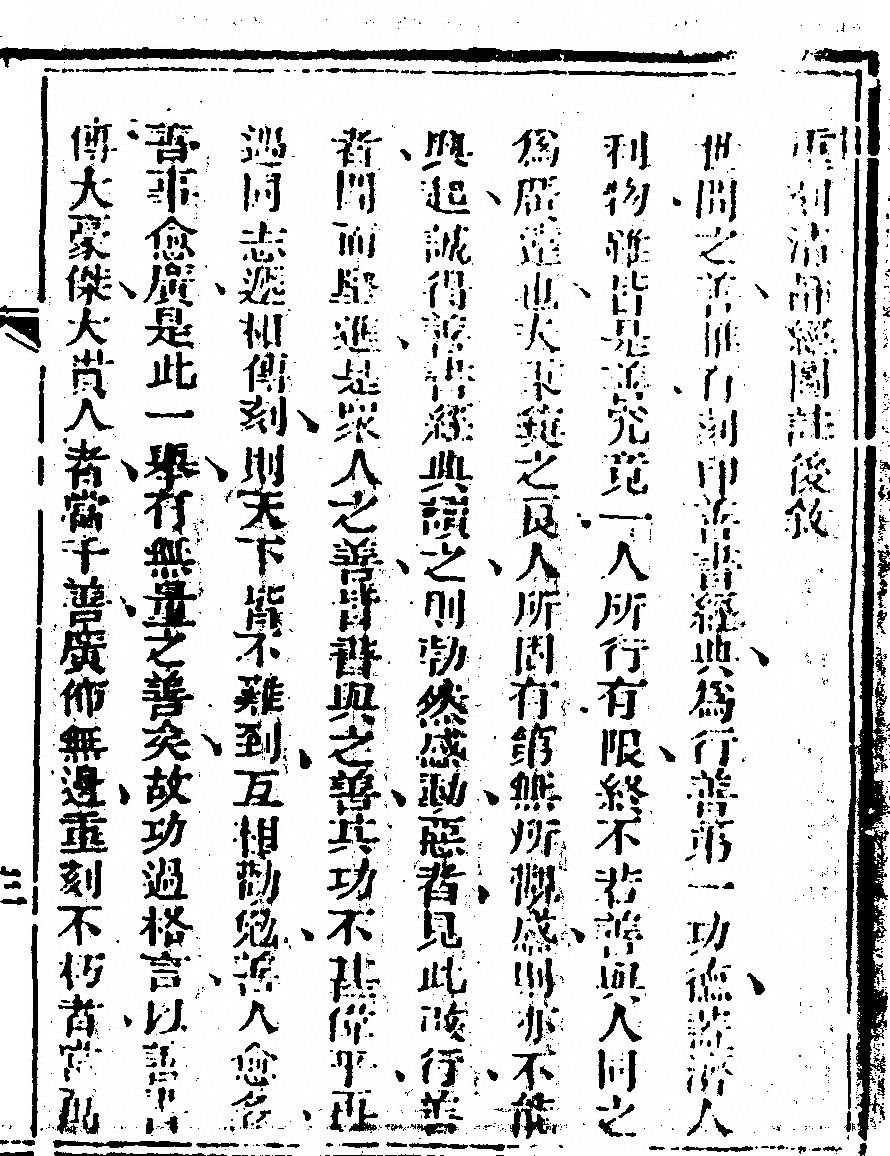 重刻清靜經圖註後敘
世間之善惟有刻印善書經典為行善第一功德濟人
利物雖皆是善究竟一人所行有限終不若善與人同之
為廣遠也大凡之良人所固有錫無所觀感則亦不能
興起誠得善書經典讀之則勃然感動惡者見此改行善
者聞而駐進是眾人之善皆善與之善其功不甚偉乎再
過同志遞相傳刻則天下皆不難到互相勸勉善人愈多
善事愈廣是此一舉有無量之善矣故功過格言以善書
傳大豪傑大貴人者當千善廣佈無邊重刻不朽者當萬